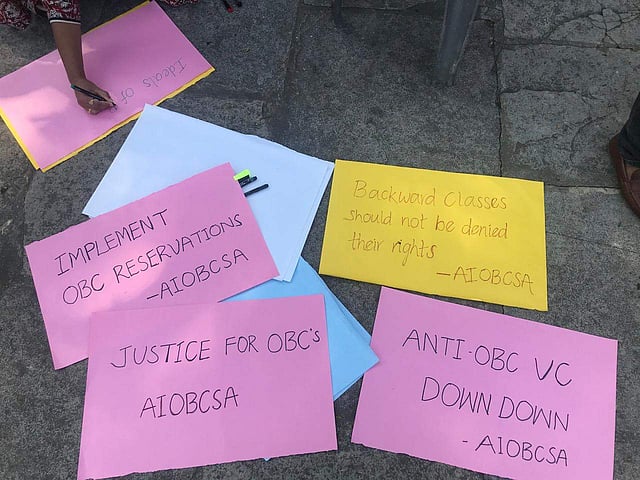 Ideals of
IMPLEMENT
OBC RESERVATIONS
-AIOBCSA
Backward Classes
should not be denied
their rights
-AIOBCSA
JUSTICE FOR OBC's
AIOBCSA
ANTI-OBC VC
DOWN DOWN
- AIOBCSA